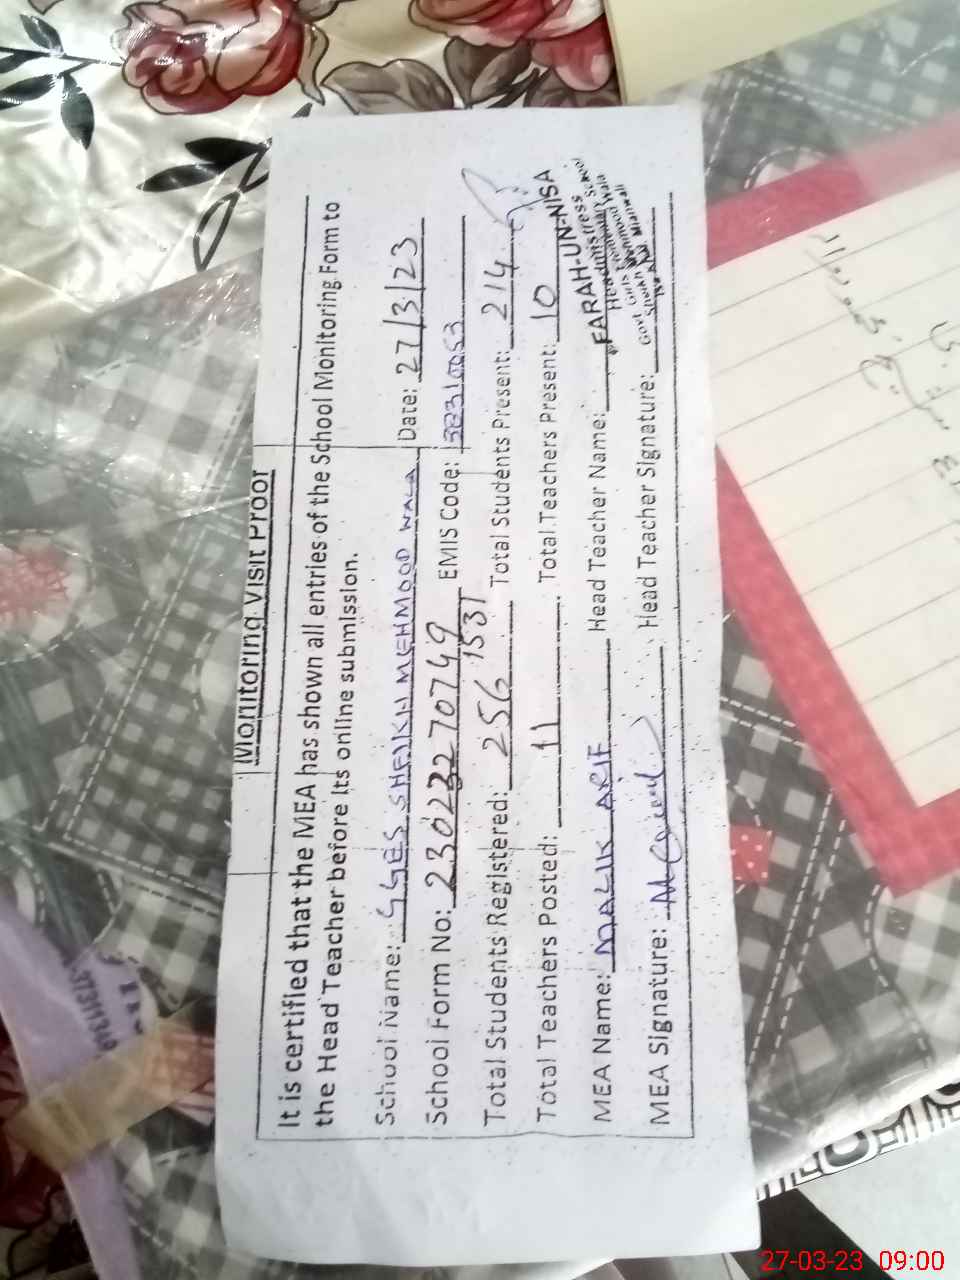 Monitoring Visit Proof
It is certified that the MEA has shown all entries of the School Monitoring Form to
the Head Teacher before its online submission.
School Name: GGES SHEIKH MEHMOOD WALA Date: 27/3/23
School Form No: EMIS Code:
Total Students Registered: 256 Total Students Present: 214
Total Teachers Posted: 11 Total Teachers Present: 10
MEA Name: MALIK ARIF Head Teacher Name: FARAH-UN-NISA
Headmistress
Govt Girls Elementary School
Sheikh Mehmood Wala
MEA Signature: Head Teacher Signature:
27-03-23 09:00